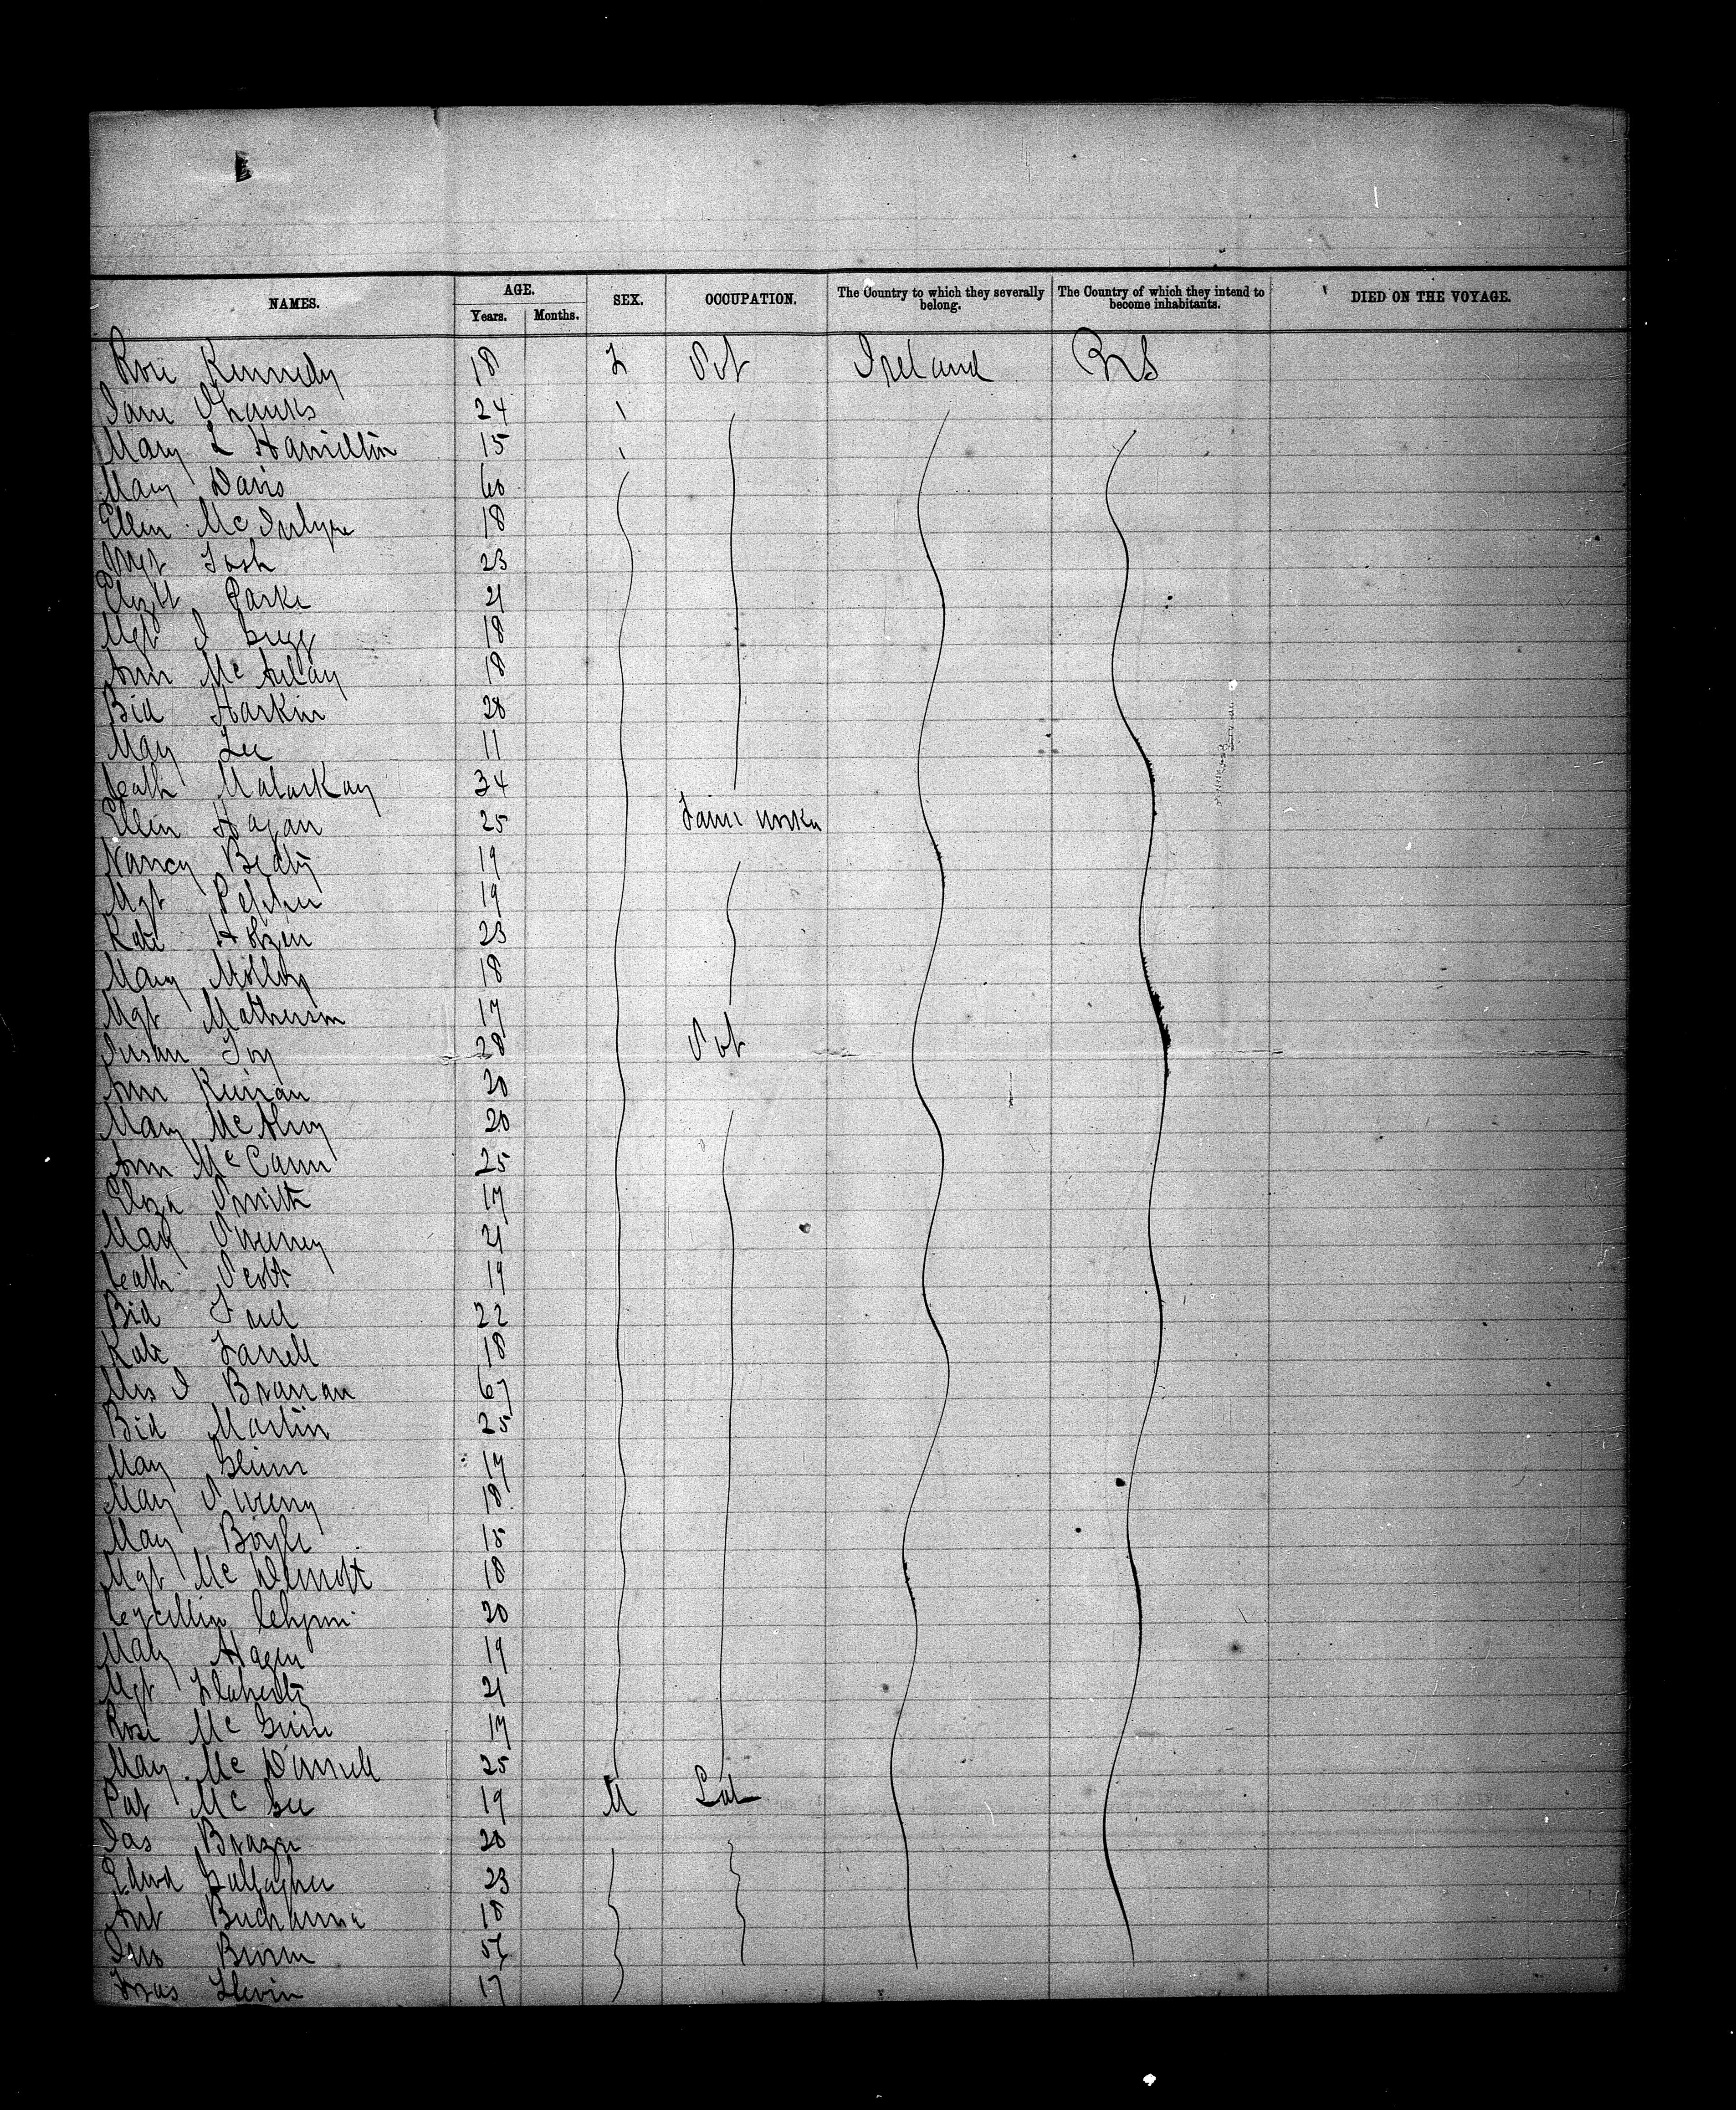 NAMES. AGE. SEX. OCCUPATION. The Country to which they severally belong. The Country of which they intend to become inhabitants. DIED ON THE VOYAGE.
Years. Months.
Rose Kennedy 18 F Svt Ireland
Jane Shanks 24
Mary L Hamilton 15
Mary Davis 60
Ellen McIntyre 18
Mgt 23
Elizth Parke 21
Mgt J Gregg 18
Ann McAulay 18
Bid Harkin 28
Mary Lee 11
Cath Malarkay 34
Ellen Hagan 25
Nancy Beaty 19
Mgt 19
Kate 23
Mary Molloy 18
Mgt Matherson 17
Susan Foy 28 Svt
Ann Keirnan 20
Mary 20
Ann McCann 25
Eliza Smith 17
Mary Sweeney 21
Cath Scott 19
Bid Friel 22
Kate Farrell 18
Mrs J 67
Bid Martin 25
Mary Glinn 17
Mary Sweeny 18
Mary Boyle 15
Mgt McDermott 18
20
Mary Hagen 19
Mgt Flaherty 21
Rose McGuire 17
Mary McDonnell 25
Pat McGee 19 M Lab
Jas 20
Edwd Gallagher 23
Ant 18
Jno 
17